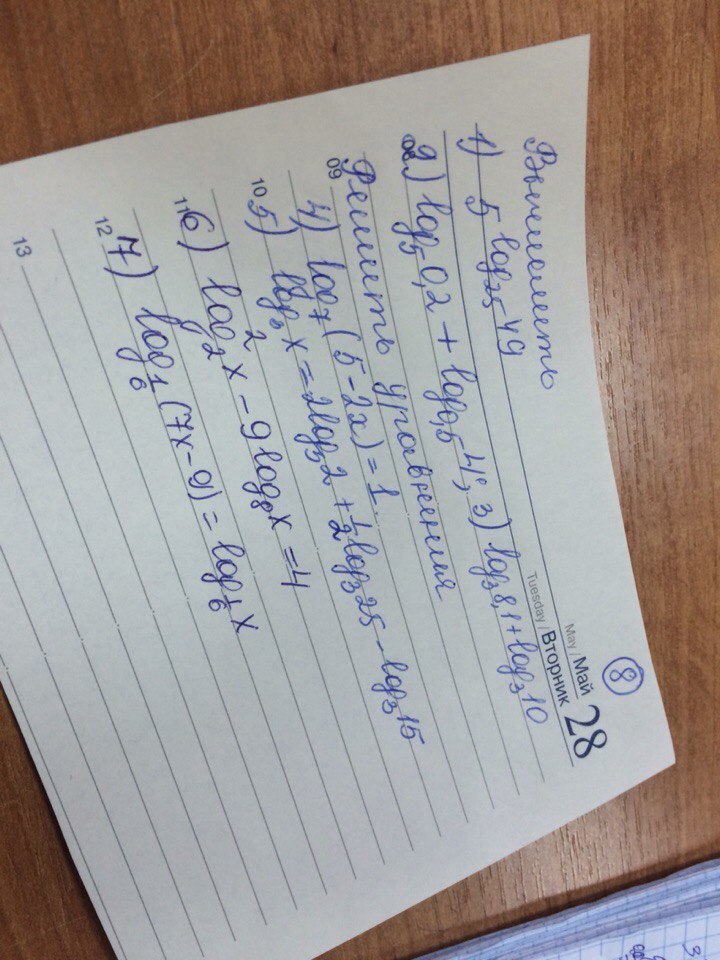 8
May / Май 28
Tuesday / Вторник
Вычислить
1) 5^{log_{25} 49}
08 2) log_5 0,2 + log_{0,5} 4; 3) log_3 8,1 + log_3 10
Решить уравнения
09
4) log_7 (5 - 2x) = 1.
10 5) log_3 x = 2log_3 2 + \frac{1}{2} log_3 25 - log_3 15
11 6) log_2^2 x - 9 log_8 x = 4
12 7) log_{\frac{1}{6}} (7x - 9) = log_{\frac{1}{6}} x
13